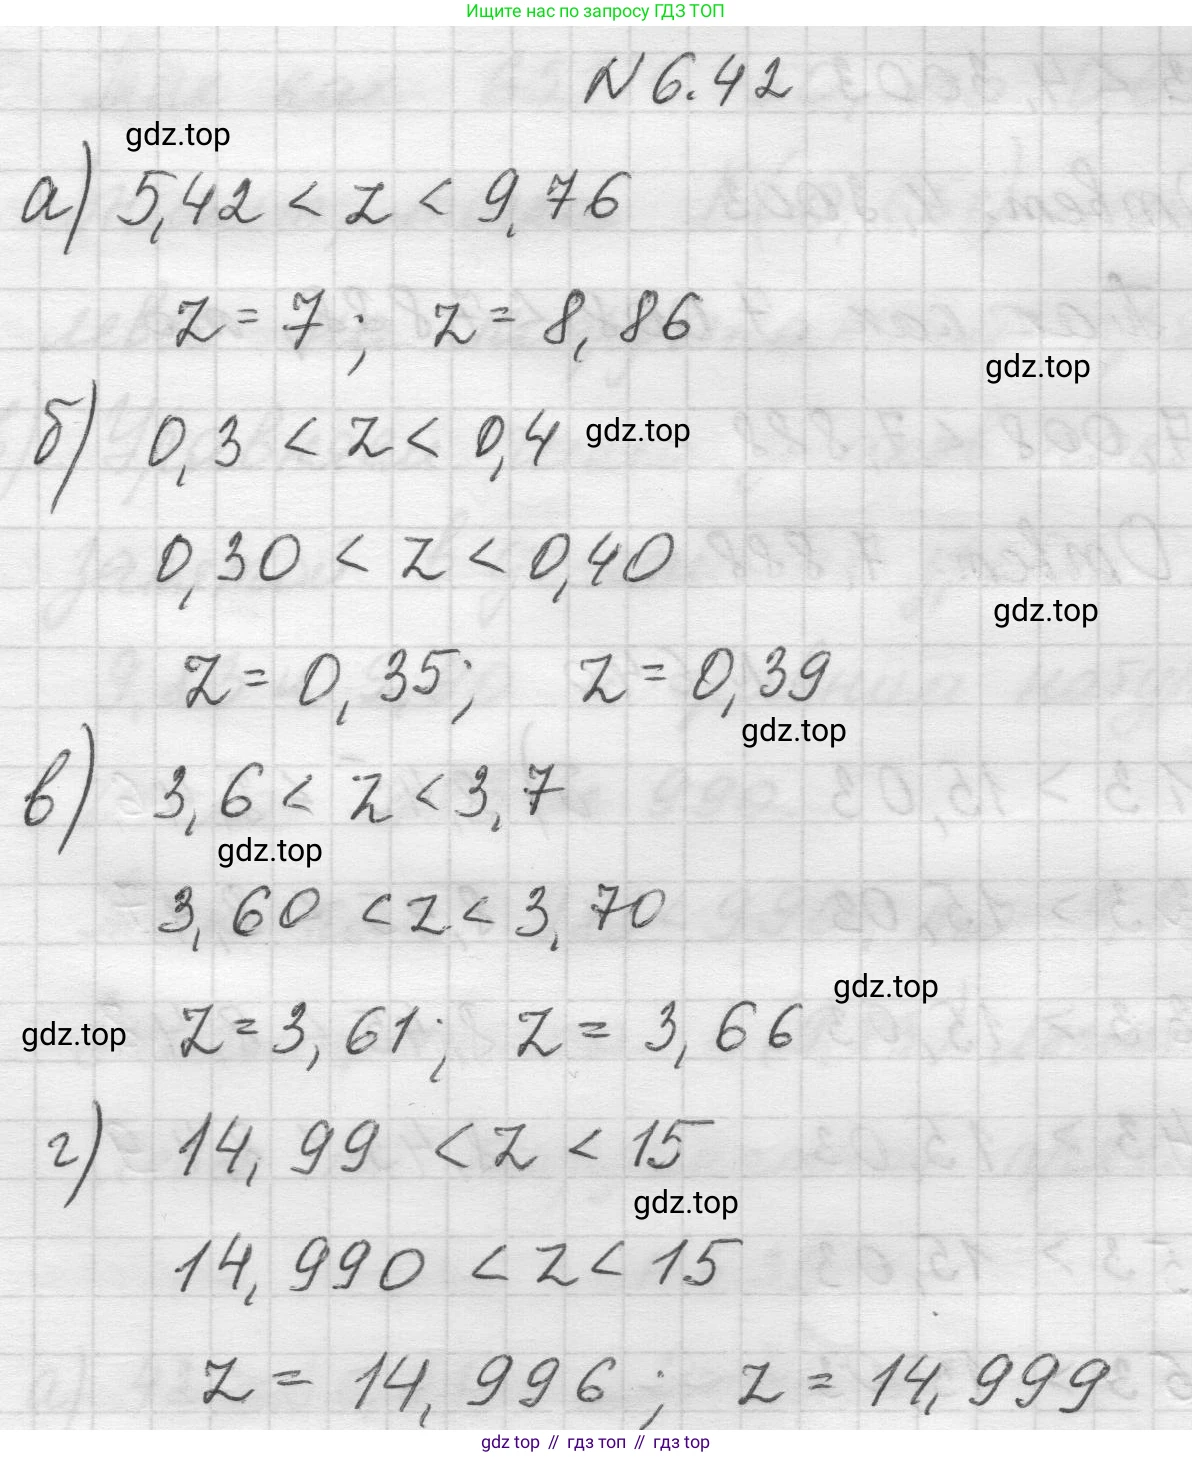 Ищите нас по запросу ГДЗ ТОП
N 6.42
gdz.top
а) 5,42 < z < 9,76
z = 7; z = 8,86
gdz.top
б) 0,3 < z < 0,4 gdz.top
0,30 < z < 0,40
gdz.top
z = 0,35; z = 0,39
gdz.top
в) 3,6 < z < 3,7
gdz.top
3,60 < z < 3,70
gdz.top
gdz.top z = 3,61; z = 3,66
г) 14,99 < z < 15
gdz.top
14,990 < z < 15
z = 14,996; z = 14,999
gdz top // гдз топ // gdz top